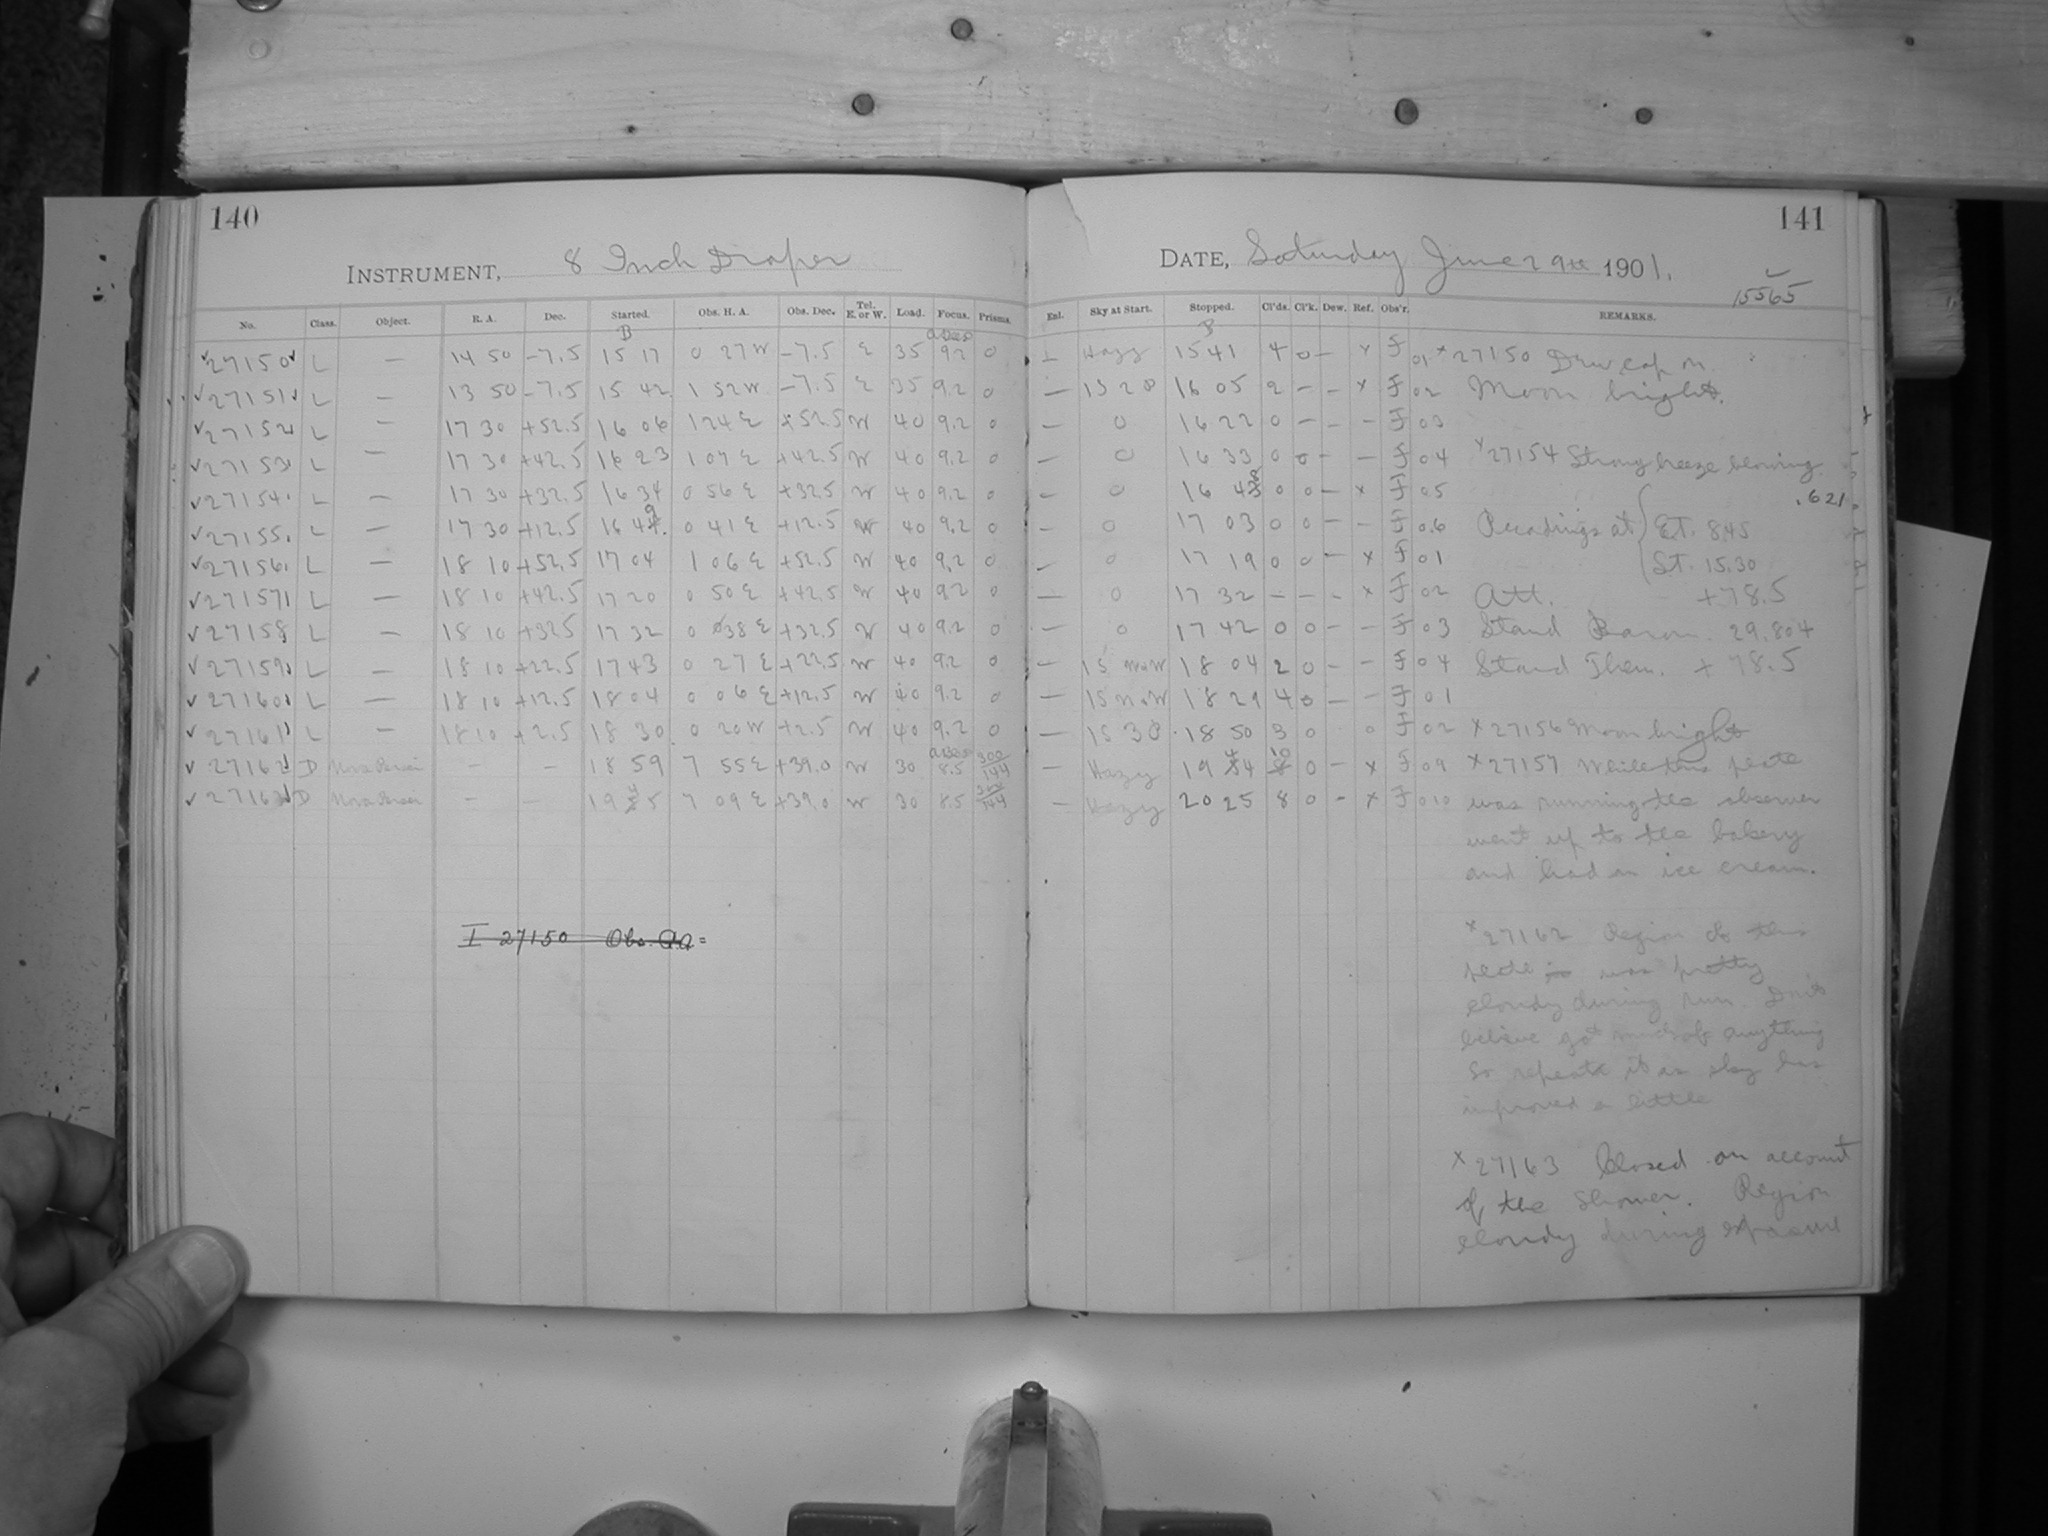 140
INSTRUMENT, 8 Inch Draper
No. Class. Object. R. A. Dec. Started. Obs. H. A. Obs. Dec. Tel. E. or W. Load. Focus. Prisms.
27150 L — 14 50 -7.5 15 17 0 27 W -7.5 E 35 9.2 0
27151 L — 13 50 -7.5 15 42 1 52 W -7.5 E 35 9.2 0
27152 L — 17 30 +52.5 16 06 1 24 E +52.5 W 40 9.2 0
27153 L — 17 30 +42.5 16 23 1 07 E +42.5 W 40 9.2 0
27154 L — 17 30 +32.5 16 34 0 56 E +32.5 W 40 9.2 0
27155 L — 17 30 +12.5 16 49 0 41 E +12.5 W 40 9.2 0
27156 L — 18 10 +52.5 17 04 1 06 E +52.5 W 40 9.2 0
27157 L — 18 10 +42.5 17 20 0 50 E +42.5 W 40 9.2 0
27158 L — 18 10 +32.5 17 32 0 38 E +32.5 W 40 9.2 0
27159 L — 18 10 +22.5 17 43 0 27 E +22.5 W 40 9.2 0
27160 L — 18 10 +12.5 18 04 0 06 E +12.5 W 40 9.2 0
27161 L — 18 10 +2.5 18 30 0 20 W +2.5 W 40 9.2 0
27162 D Nova Persei — — 18 59 7 55 E +39.0 W 30 8.5 300/144
27163 D Nova Persei — — 19 45 7 09 E +39.0 W 30 8.5 300/144
I 27150 Obs.
141
DATE, Saturday June 29th 1901.
15565
Enl. Sky at Start. Stopped. Cl'ds. Cl'k. Dew. Ref. Obs'r. REMARKS.
— Hazy 15 41 4 0 — x F 01 x 27150 Dew cap on.
— 1S20 16 05 2 — — x F 02 Moon bright.
— 0 16 22 0 — — — F 03
— 0 16 33 0 0 — — F 04 x 27154 Strong breeze blowing
— 0 16 48 0 0 — x F 05 .621
— 0 17 03 0 0 — — F 06 Readings at ET. 8.45
— 0 17 19 0 0 — x F 01 ST. 15.30
— 0 17 32 — — — x F 02 Att. +78.5
— 0 17 42 0 0 — — F 03 Stand Barom. 29.804
— 1S NW 18 04 2 0 — — F 04 Stand Them. +78.5
— 1S NW 18 29 4 0 — — F 01
— 1S 30 18 50 3 0 0 F 02 x 27156 Moon bright
— Hazy 19 44 10 0 — x F 09 x 27157 While this plate
— Hazy 20 25 8 0 — x F 010 was running the observer
went up to the bakery
and had an ice cream.
x 27162 Region of this
plate is was pretty
cloudy during run. Don't
believe got much of anything
So repeat it as sky has
improved a little
x 27163 Closed on account
of the shower. Region
cloudy during exposure